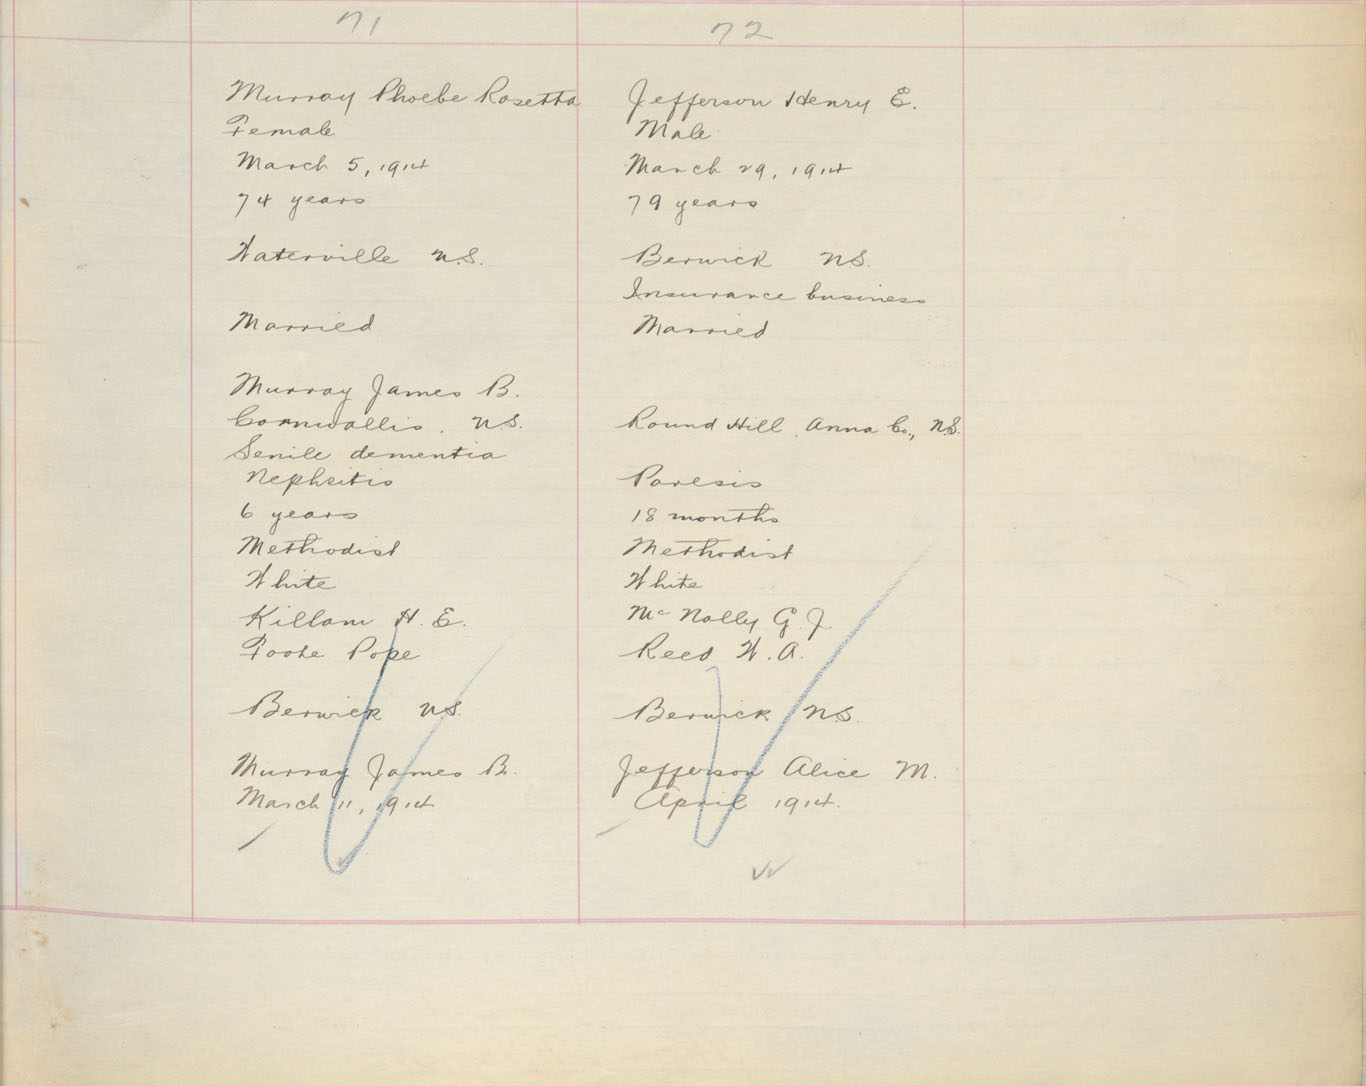 71
Murray Phoebe Rosetta
Female
March 5, 1914
74 years
Waterville N.S.
Married
Murray James B.
Cornwallis, N.S.
Senile dementia
Nephritis
6 years
Methodist
White
Killam H. E.
Foote Pope
Berwick N.S.
Murray James B.
March 11, 1914
72
Jefferson Henry E.
Male
March 29, 1914
79 years
Berwick N.S.
Insurance business
Married
Round Hill, Anna Co., N.S.
Paresis
18 months
Methodist
White
McNally G. J
Reed W. A.
Berwick N.S.
Jefferson Alice M.
April 1914.